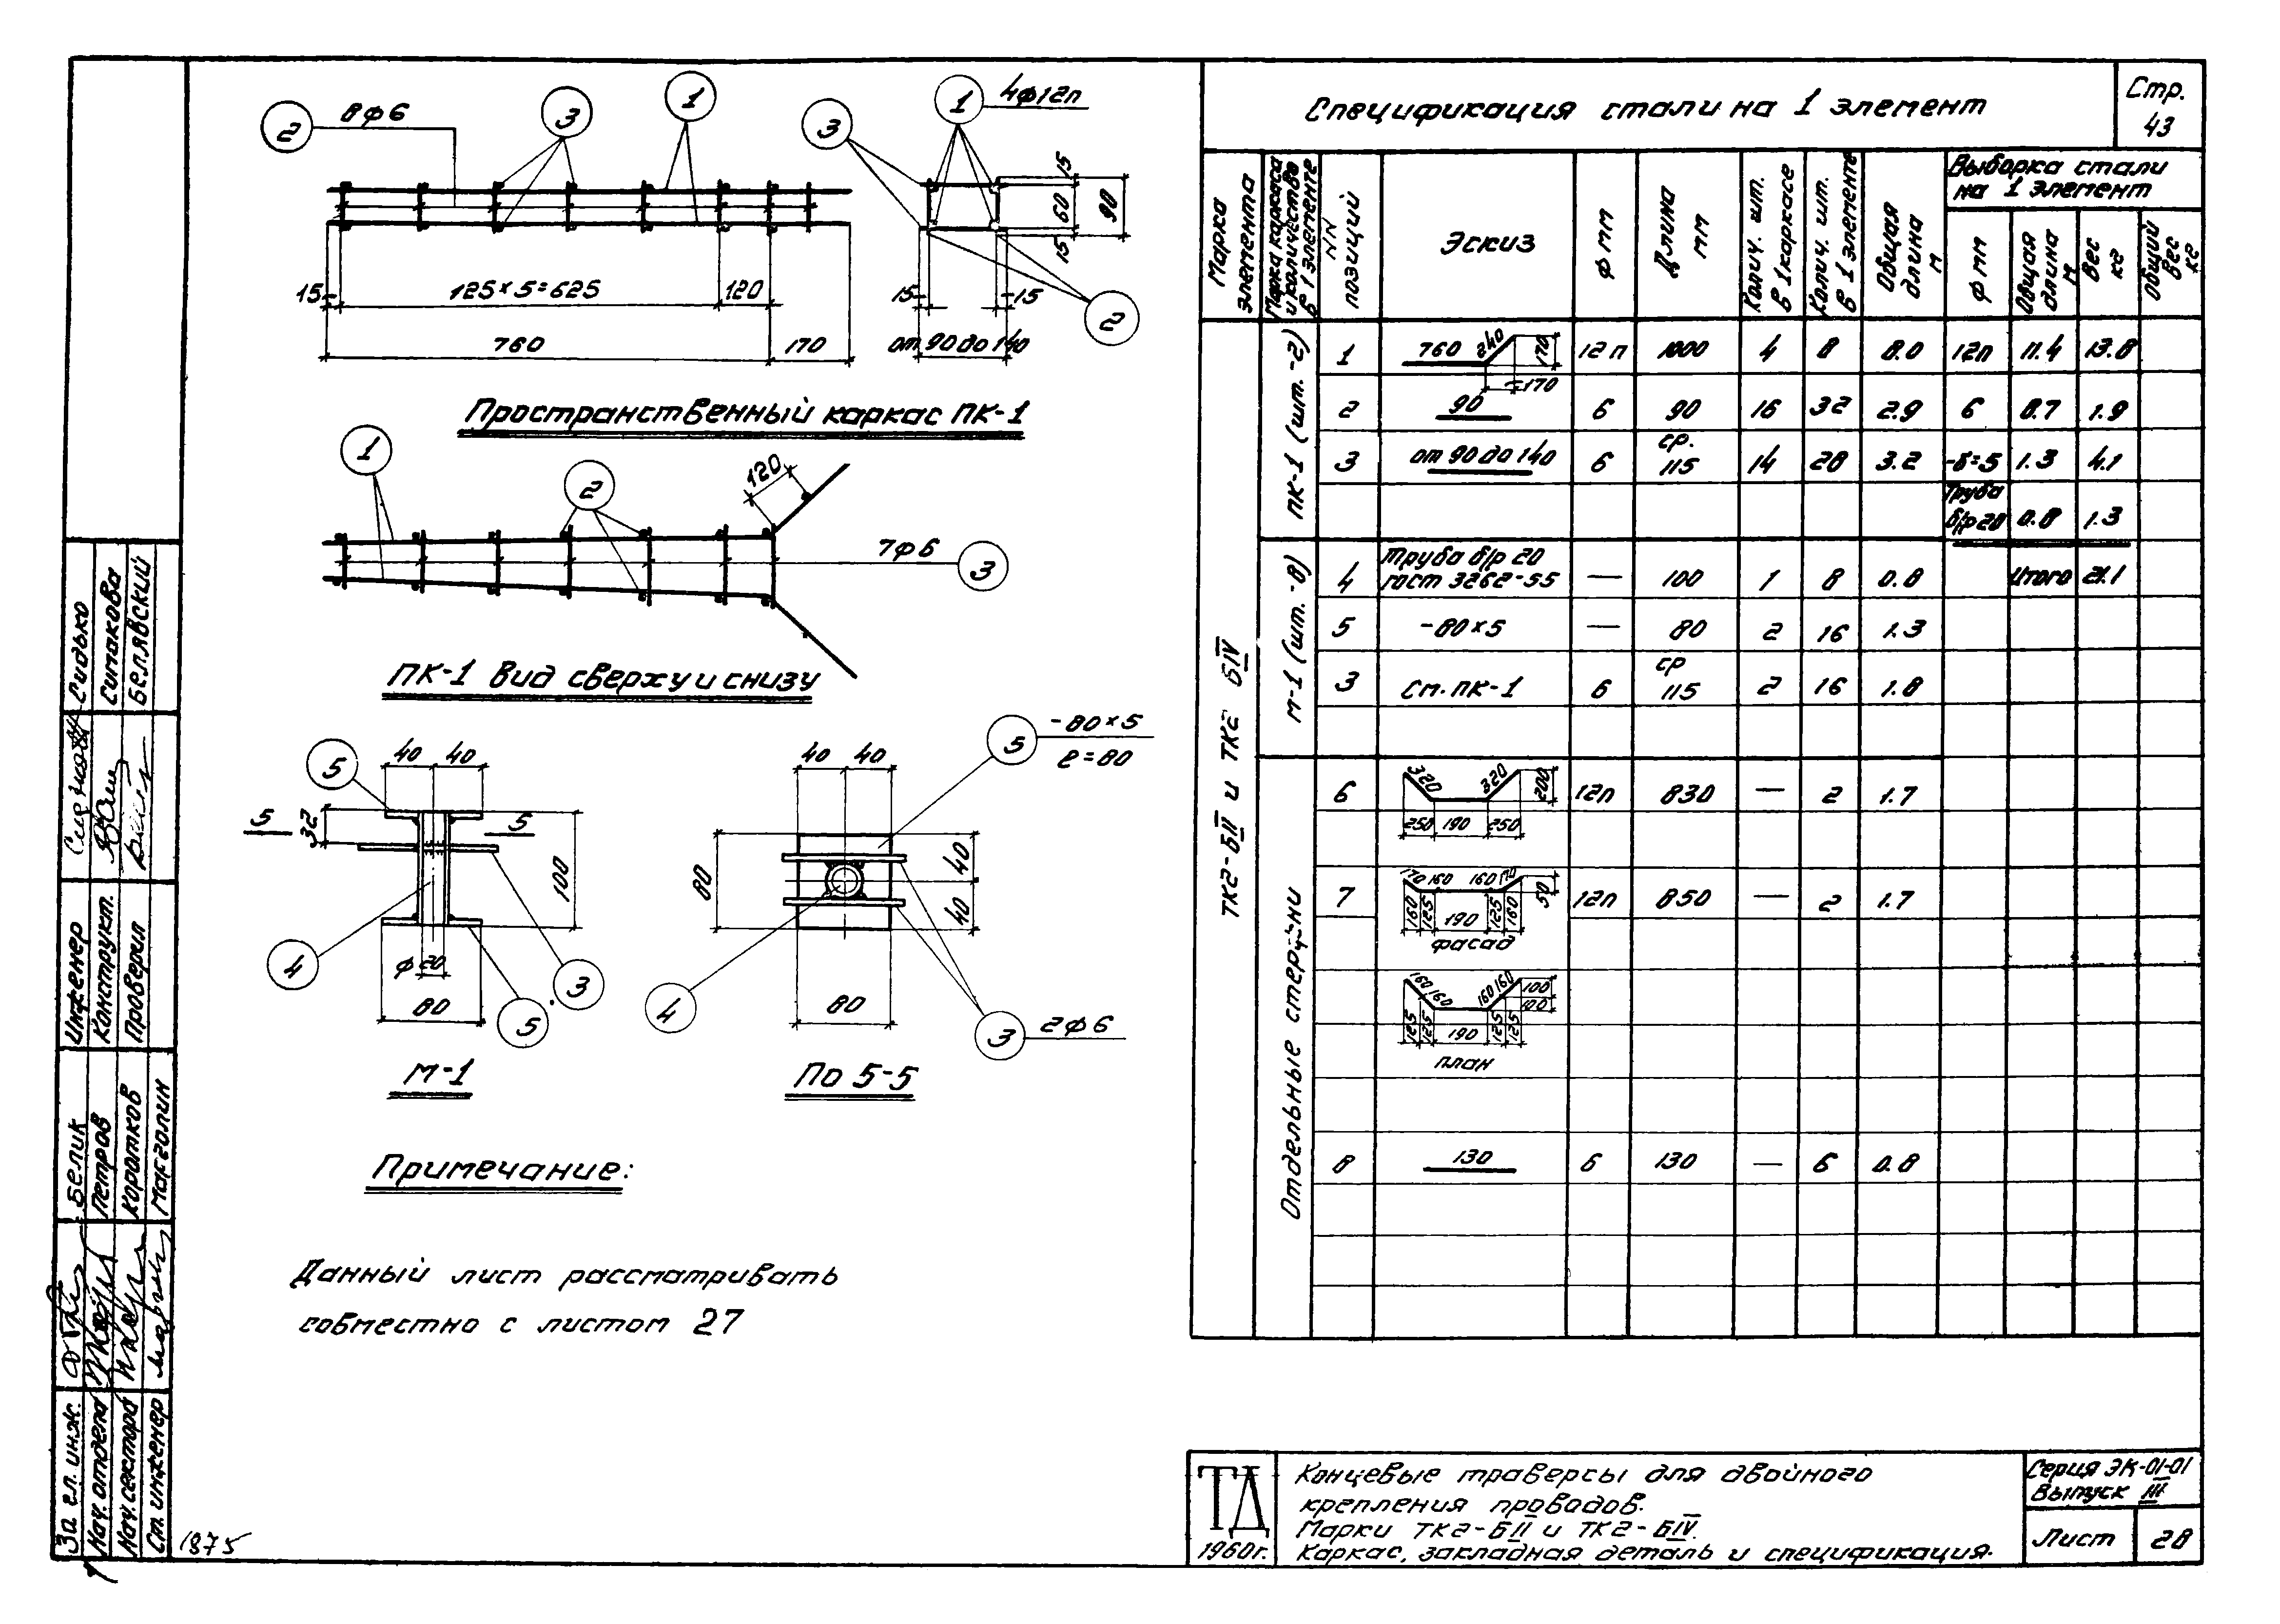 Спецификация стали на 1 элемент
Стр.
43
2
8ф6
3
1
3
1
4ф12п
15
60
15
90
15
125×5=625
120
760
170
15
15
от 90 до 140
2
Пространственный каркас ПК-1
1
2
120
7ф6
3
ПК-1 Вид сверху и снизу
5
40 40
5
5
32
100
ф20
80
4
3
5
М-1
40 40
5
-80×5
ℓ=80
80
40
40
80
4
3
2ф6
По 5-5
Примечание:
Данный лист рассматривать
совместно с листом 27
Марка элемента
Марка каркаса и количество в 1 элементе
NN позиций
Эскиз
ф мм
Длина мм
Колич. шт. в 1 каркасе
Колич. шт. в 1 элементе
Общая длина м
Выборка стали
на 1 элемент
ф мм
Общая длина м
Вес кг
Общий вес кг
ТК2-БII и ТК2 БIV
ПК-1 (шт.-2)
1 760 240 170 170 12п 1000 4 8 8.0 12п 11.4 13.8
2 90 6 90 16 32 2.9 6 8.7 1.9
3 от 90 до 140 6 ср. 115 14 28 3.2 -δ=5 1.3 4.1
Труба б/р 20 0.8 1.3
М-1 (шт.-8)
4 Труба б/р 20 гост 3262-55 — 100 1 8 0.8 Итого 21.1
5 -80×5 — 80 2 16 1.3
3 См. ПК-1 6 ср 115 2 16 1.8
Отдельные стержни
6 320 320 200 250 190 250 12п 830 — 2 1.7
7 170 160 160 170 50 160 125 190 125 160 12п 850 — 2 1.7
фасад
160 160 160 160 100 100 125 125 190 125 125
план
8 130 6 130 — 6 0.8
ТД
1960г.
Концевые траверсы для двойного
крепления проводов.
Марки ТК2-БII и ТК2-БIV.
Каркас, закладная деталь и спецификация.
Серия ЭК-01-01
Выпуск III
Лист
28
Инженер Сидько
Конструкт. Симакова
Проверил Белявский
За гл. инж. Белик
Нач. отдела Петров
Нач. сектора Коротков
Ст. инженер Марголин
1875